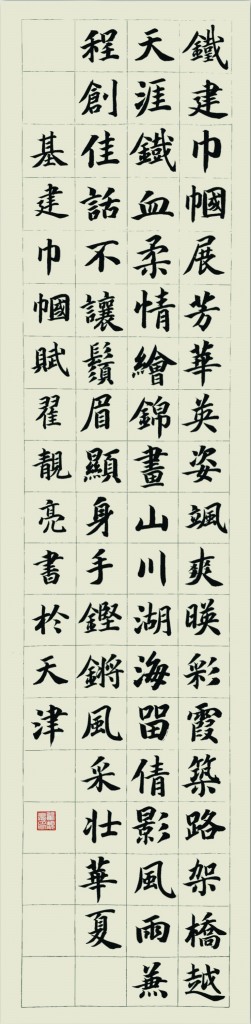 鐵建巾幗展芳華英姿颯爽暎彩霞築路架橋越
天涯鐵血柔情繪錦畫山川湖海留倩影風雨兼
程創佳話不讓鬚眉顯身手鏗鏘風采壯華夏
基建巾幗賦翟靚亮書於天津